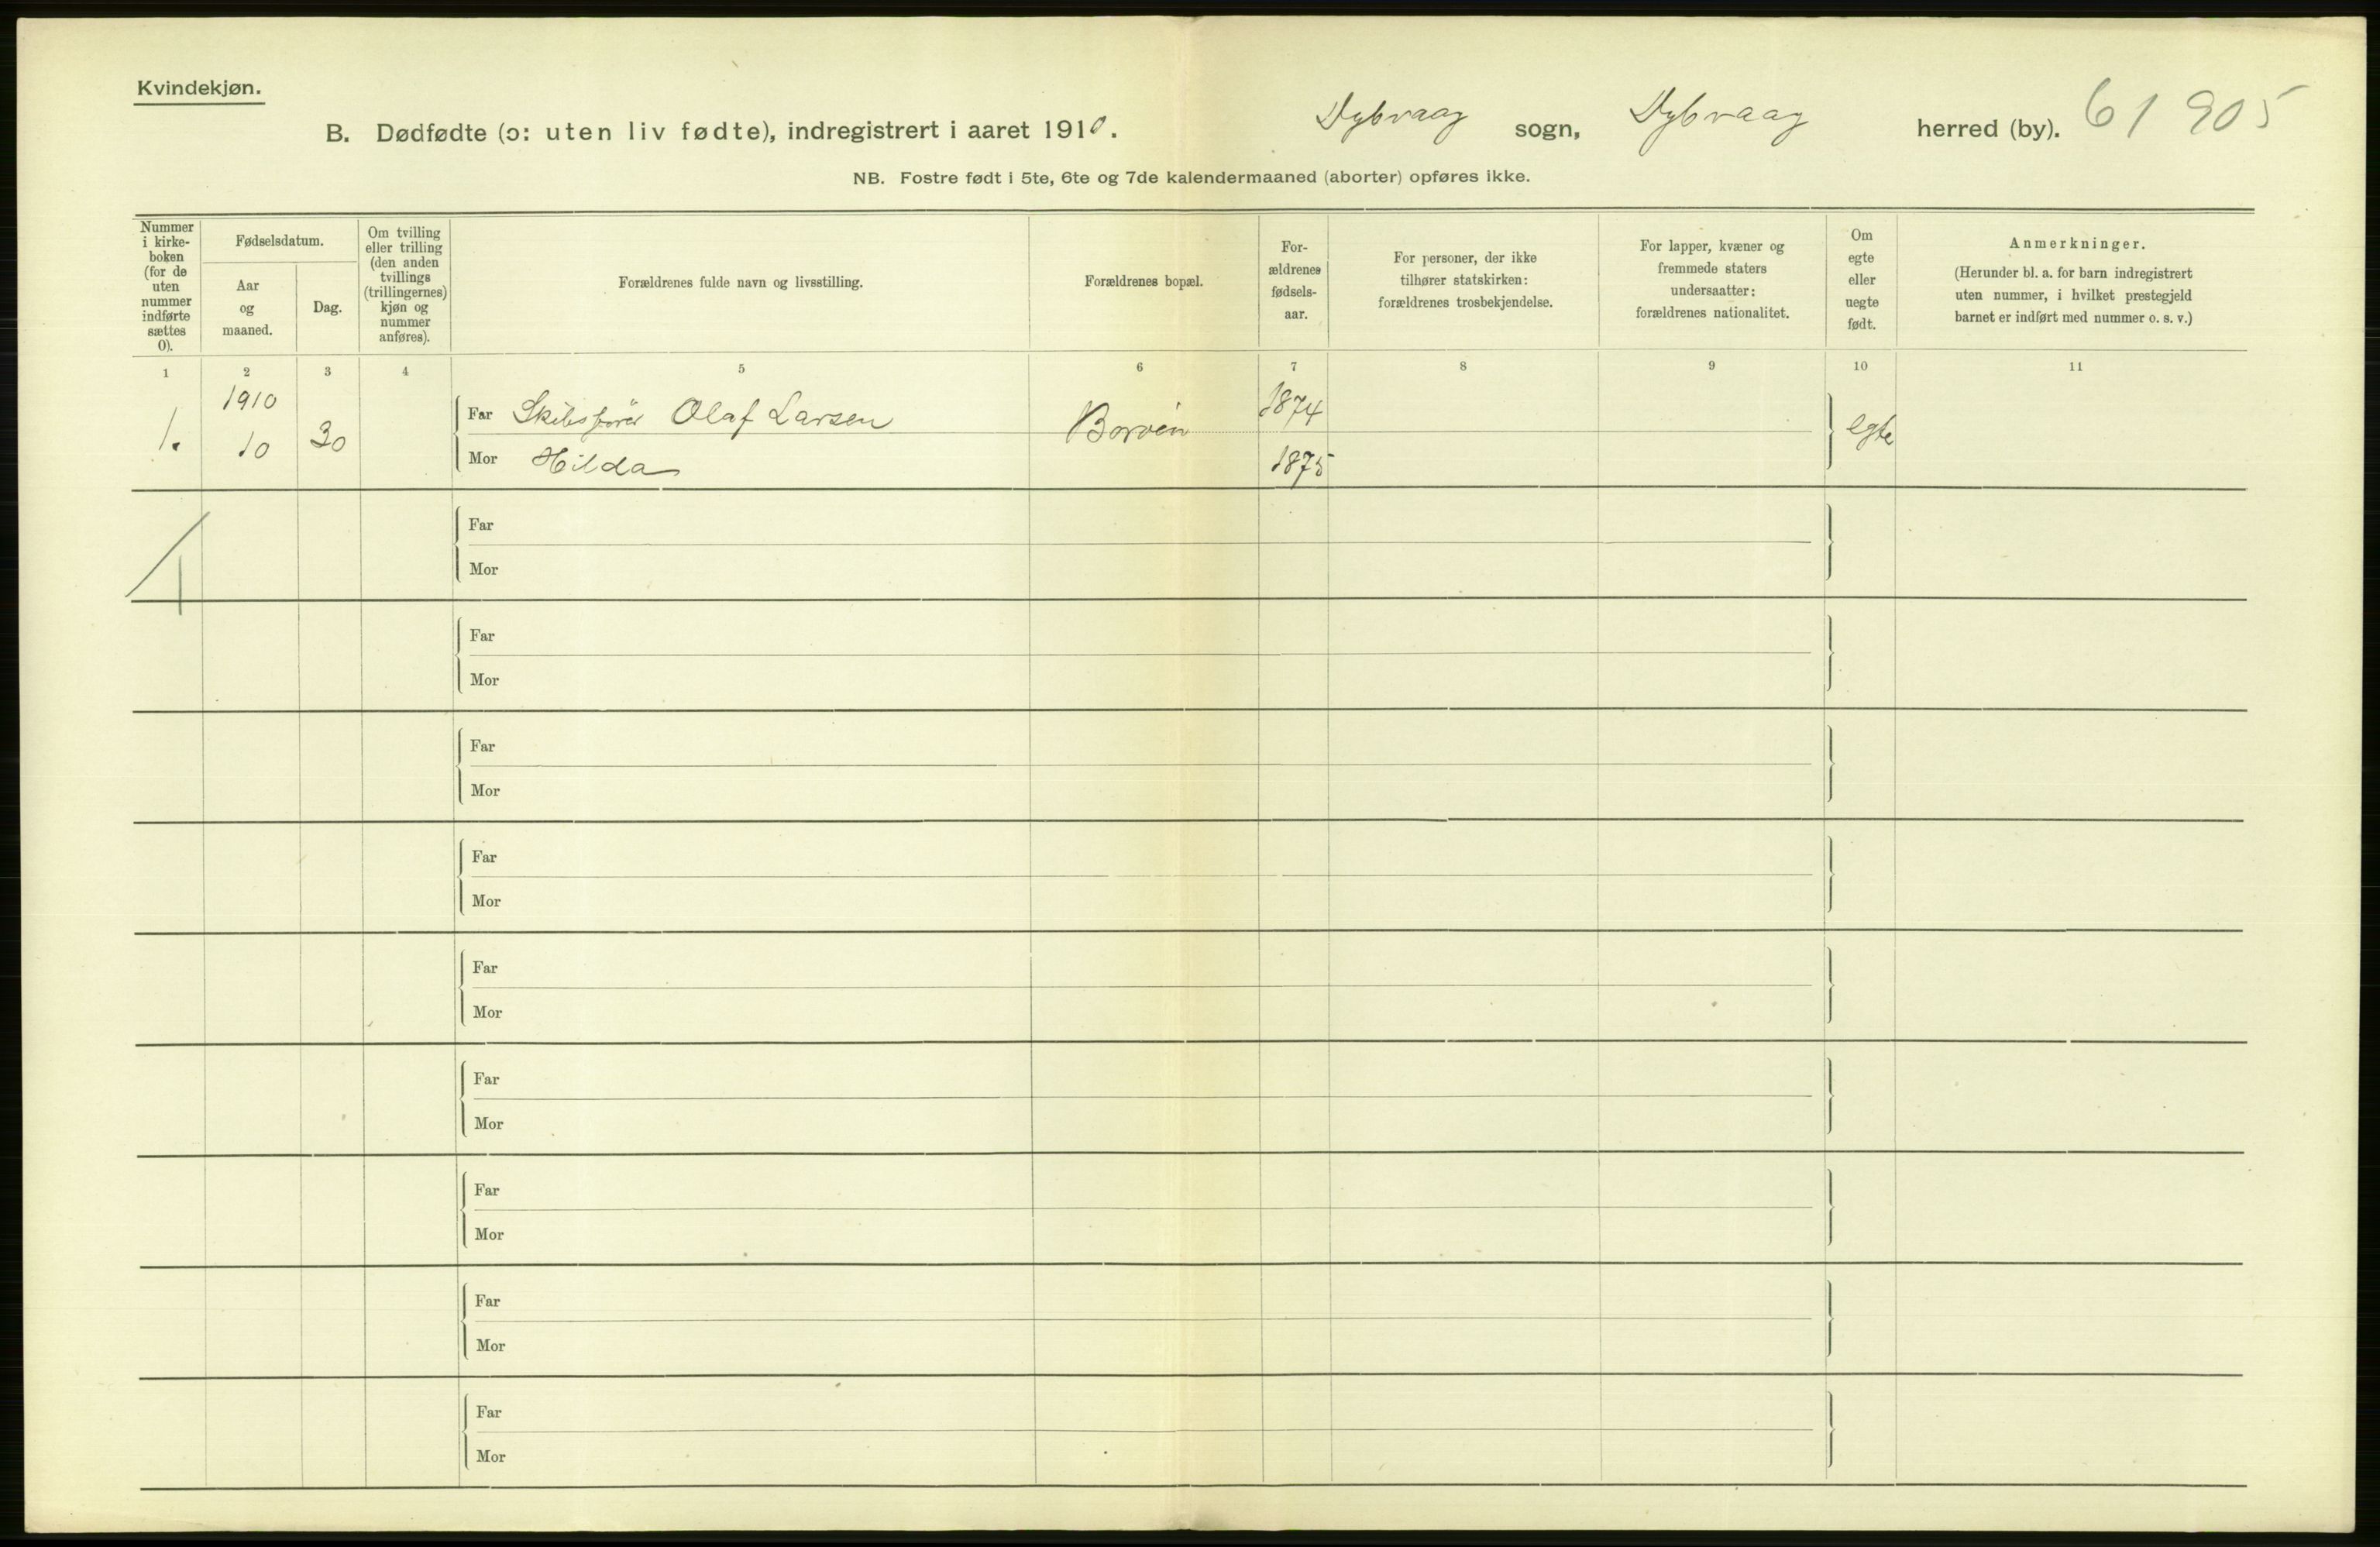 Kvindekjøn.
B. Dødfødte (ɔ: uten liv fødte), indregistrert i aaret 1910. Dybvaag sogn, Dybvaag herred (by). 61 905
NB. Fostre født i 5te, 6te og 7de kalendermaaned (aborter) opføres ikke.
Nummer
i kirke-
boken
(for de
uten
nummer
indførte
sættes
0).
Fødselsdatum.
Aar
og
maaned.
Dag.
Om tvilling
eller trilling
(den anden
tvillings
(trillingernes)
kjøn og
nummer
anføres).
Forældrenes fulde navn og livsstilling.
Forældrenes bopæl.
For-
ældrenes
fødsels-
aar.
For personer, der ikke
tilhører statskirken:
forældrenes trosbekjendelse.
For lapper, kvæner og
fremmede staters
undersaatter:
forældrenes nationalitet.
Om
egte
eller
uegte
født.
Anmerkninger.
(Herunder bl. a. for barn indregistrert
uten nummer, i hvilket prestegjeld
barnet er indført med nummer o. s. v.)
1 2 3 4 5 6 7 8 9 10 11
1910
1. 10 30 Far Skibsfører Olaf Larsen Borøen 1874 egte
Mor Hilda 1875
Far
Mor
1
Far
Mor
Far
Mor
Far
Mor
Far
Mor
Far
Mor
Far
Mor
Far
Mor
Far
Mor